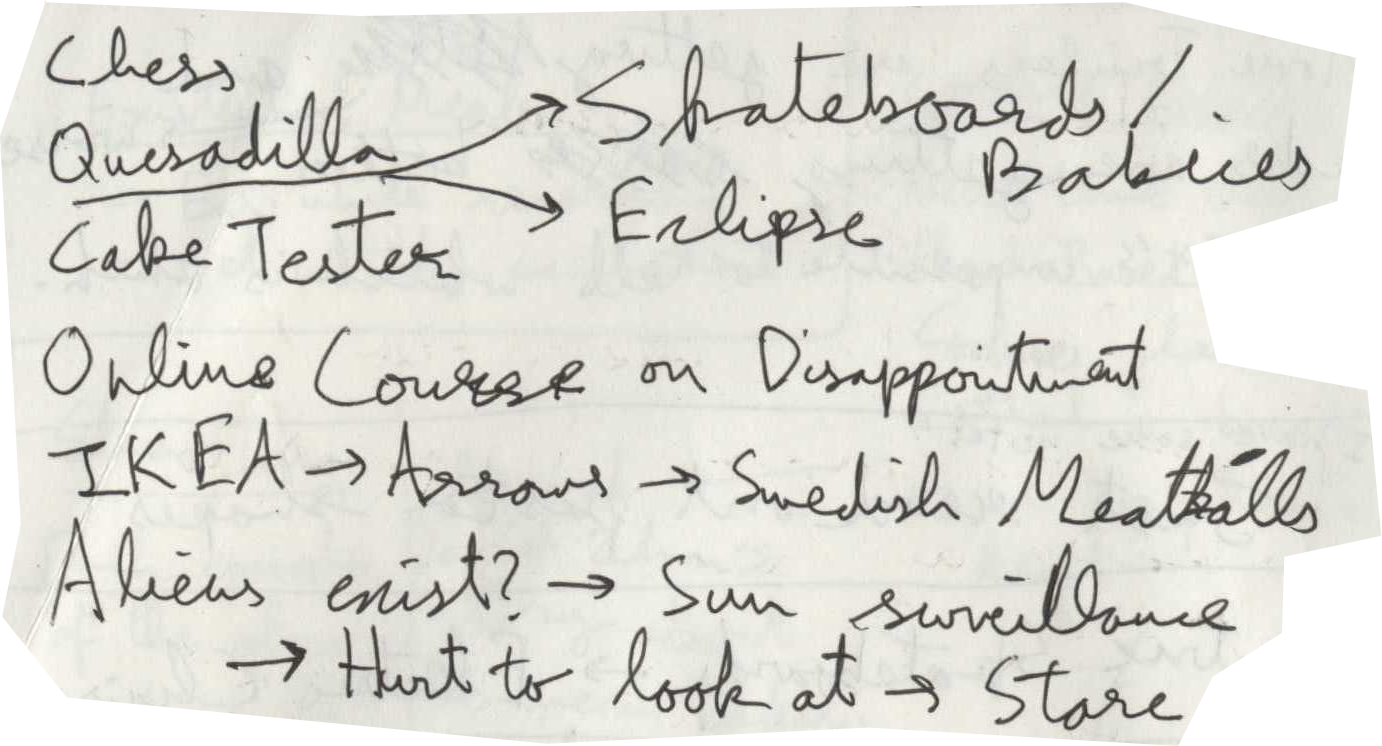 Chess
Quesadilla → Skateboards/
Babies
→ Eclipse
Cake Tester
Online Course on Disappointment
IKEA → Arrows → Swedish Meatballs
Aliens exist? → Sun surveillance
→ Hurt to look at → Stare